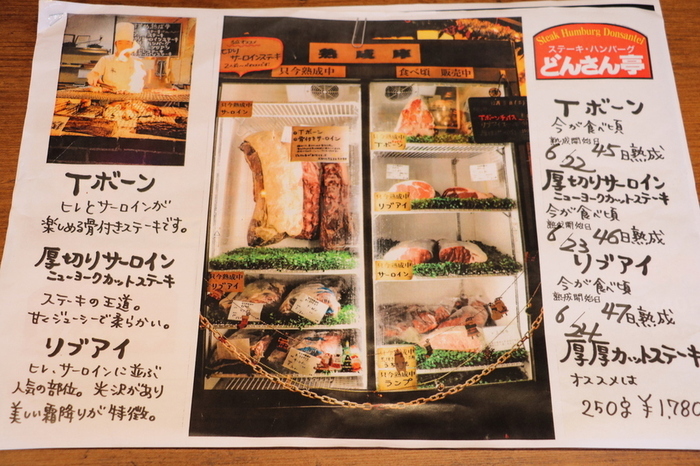 Tボーン
ヒレとサーロインが
楽しめる骨付きステーキです。
厚切りサーロイン
ニューヨークカットステーキ
ステーキの王道。
甘くジューシーで柔らかい。
リブアイ
ヒレ、サーロインに並ぶ
人気の部位。光沢があり
美しい霜降りが特徴。
熟成庫
只今熟成中
食べ頃 販売中
サーロインステーキ
只今熟成中
Tボーン
骨付サーロイン
只今熟成中
リブアイ
熟成中
Tボーン
只今熟成中
リブアイ
只今熟成中
サーロイン
只今熟成中
ランプ
Steak Humburg Donsantei
ステーキ・ハンバーグ
どんさん亭
Tボーン
今が食べ頃
熟成開始日
6/22 45日熟成
厚切りサーロイン
ニューヨークカットステーキ
今が食べ頃
熟成開始日
6/23 46日熟成
リブアイ
今が食べ頃
熟成開始日
6/24 47日熟成
厚厚カットステーキ
オススメは
250g ¥1,780